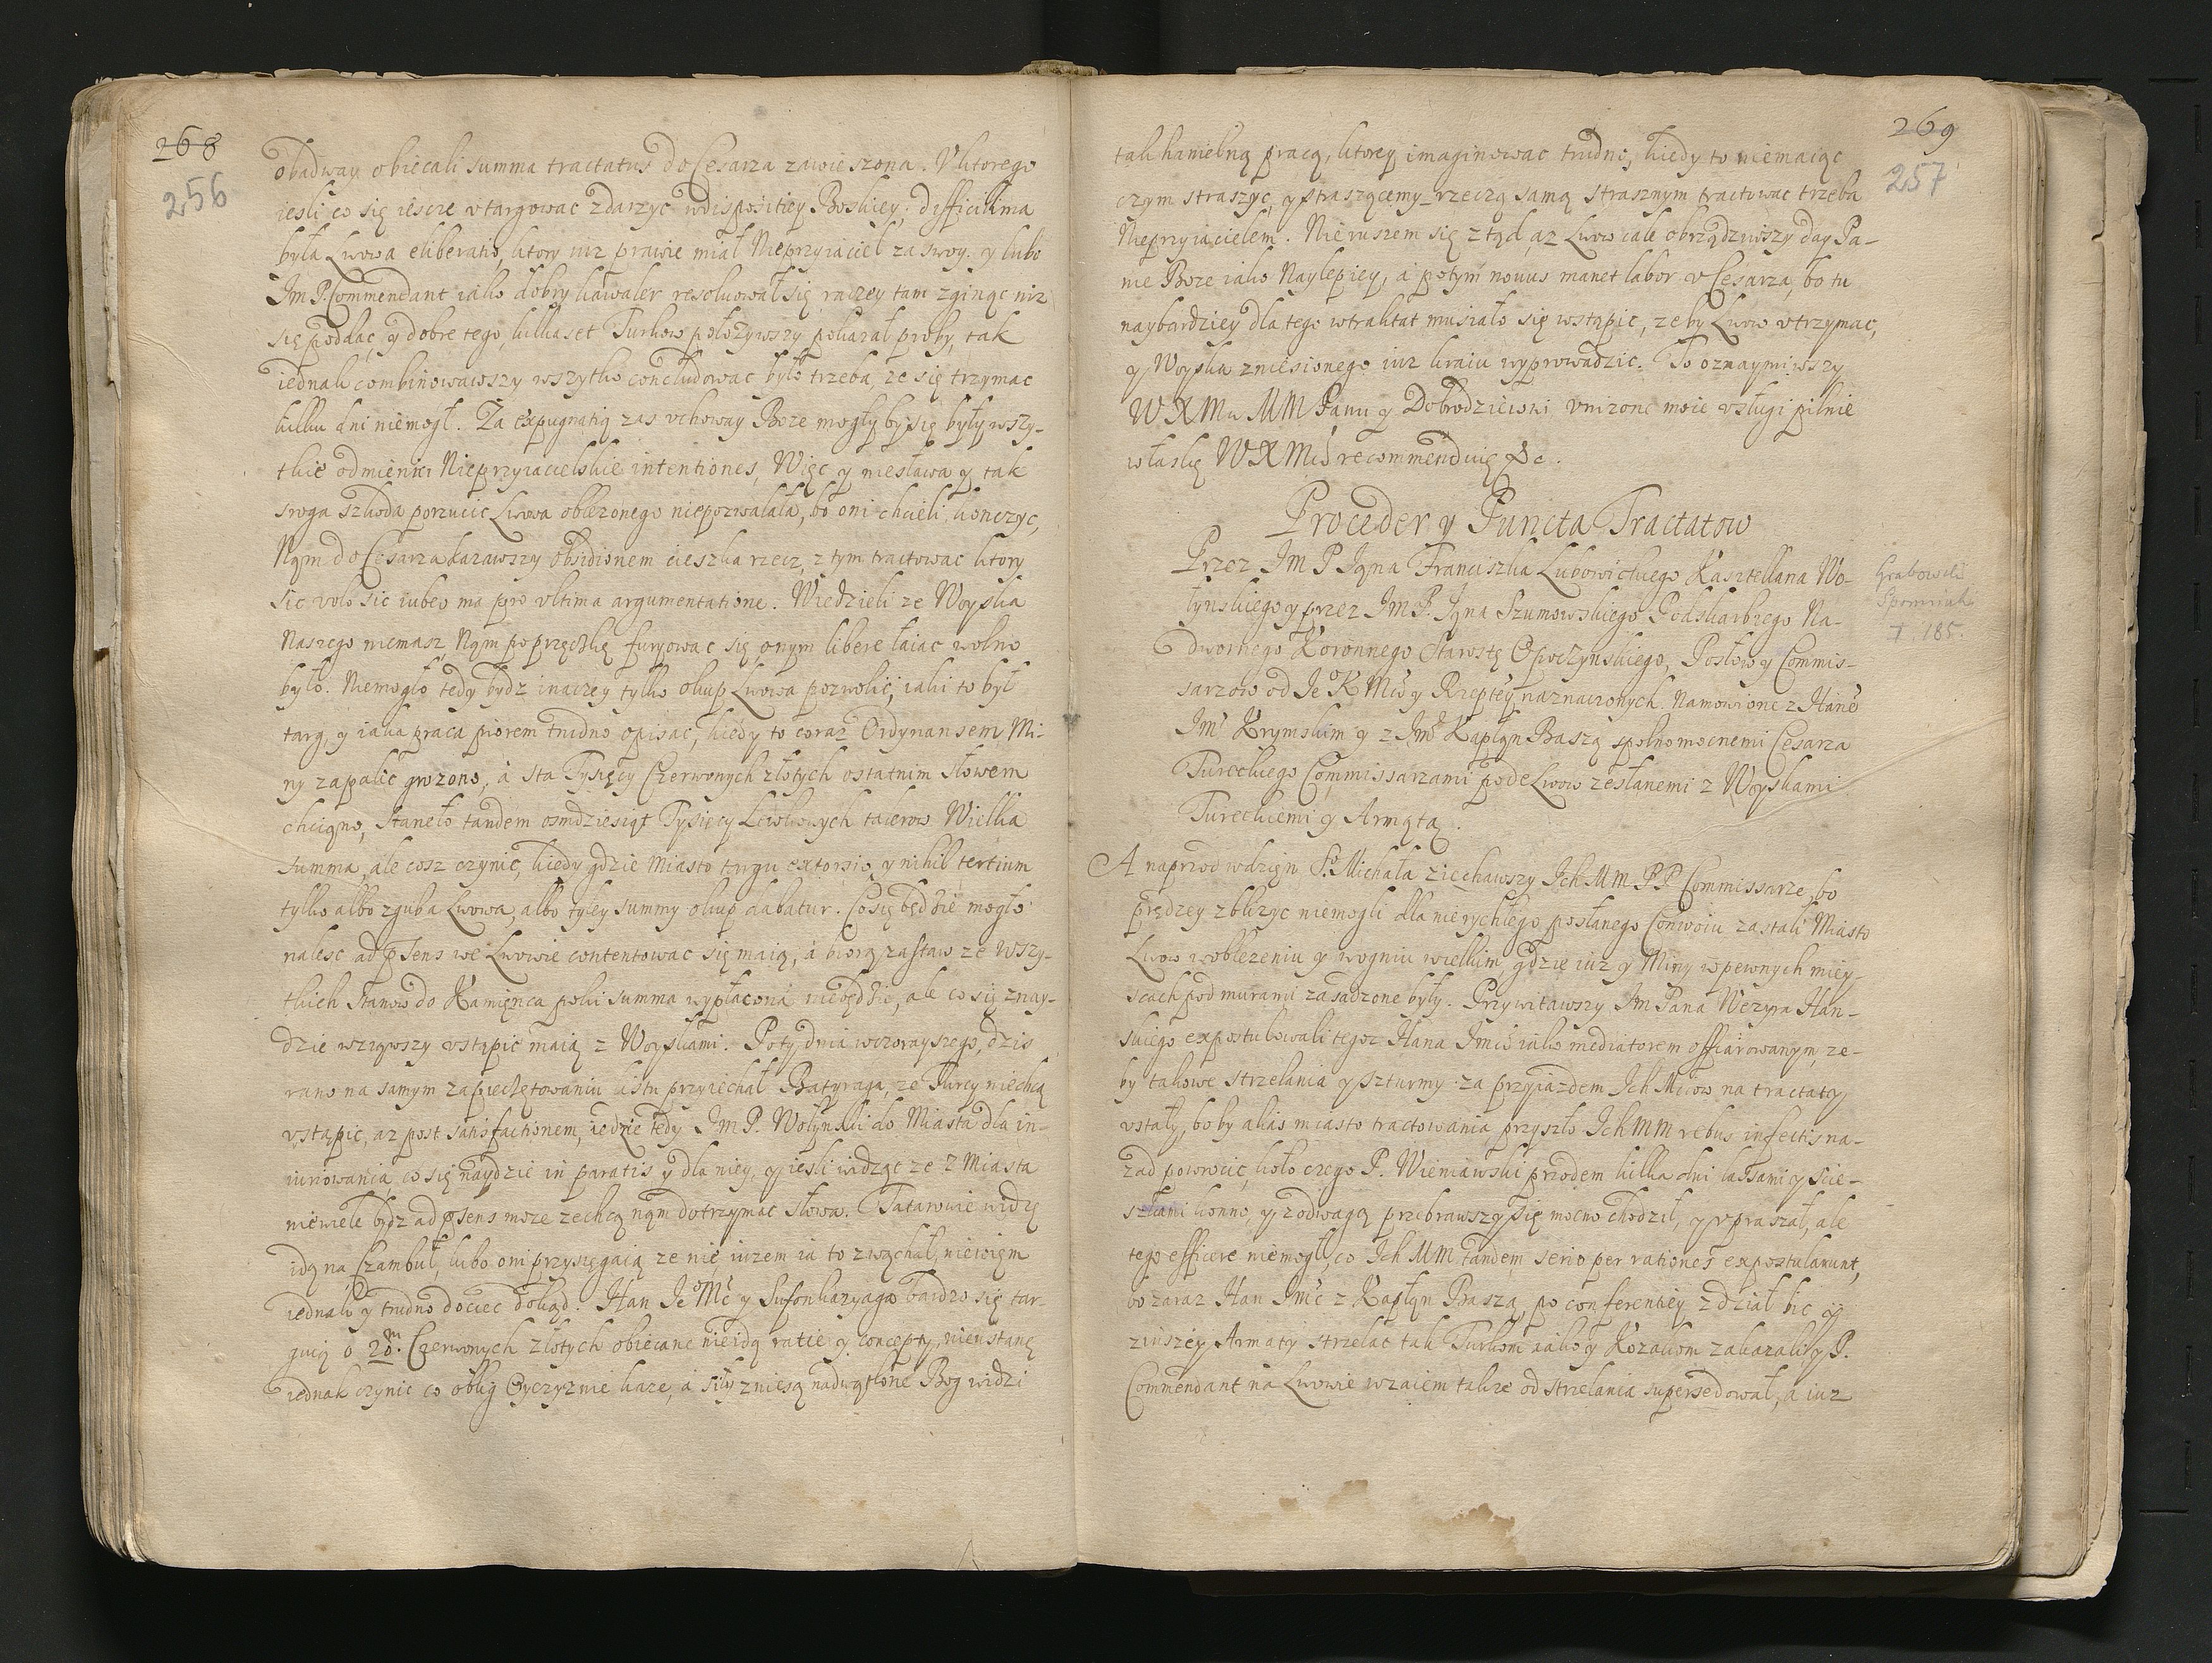 268
256
obadway obiecali summa tractatus do Cesarza zawieszona. U ktorego
iesli co się iescze utargować zdarzyć w dispositiey Boskiey; difficilima
była Lwowa eliberatio, ktory iuz prawie miał Nieprzyiaciel za swoy. y lubo
Jm P. Commendant iako dobry kawaler resoluował się raczey tam zginąc niz
się poddac, y dobre tego, kilkaset Turkow połozywszy pokazał proby, tak
iednak combinowawszy wszytko concludowac było trzeba, ze się trzymac
kilku dni niemogł. Za expugnatią zas uchoway Boze mogły by się były wszy-
tkie odmienic Nieprzyiacielskie intentiones, Więc y niesława y tak
sroga szkoda porzucic Lwowa oblezonego niepozwalała, bo oni chcieli konczyc,
Nąm do Cesarza kazawszy obsidionem cieszka rzecz, z tym tractowac ktory
sic volo sic iubeo ma pro ultima argumentatione. Wiedzieli ze Woyska
Naszego niemasz, Nąm poprzęszkę furyowac się onym libere łaiac wolno
było. Niemogło tedy bydz inaczey tylko okup Lwowa pozwolić, iaki to był
targ, y iaka praca piorem trudno opisac, kiedy to coraz Ordynansem Mi-
ny zapalic grozono, á sta Tysięcy Czerwonych złotych ostatnim słowem
chciąno, Staneło tandem osmdziesiąt Tysięcy Lewkowych talerow Wielka
summa, ale cosz czynic, kiedy gdzie miasto targu extorsio, y nihil tertium
tylko albo zguba Lwowa, albo tyley summy okup dabatur. Co się będzie mogło
nalesc ad psens we Lwowie contentowac się maią, á biorą zastaw ze wszy-
tkich stanow do Kamięnca poki summa wypłacona niebędzie, ale co się znay-
dzie wziąwszy ustąpic maią z Woyskami. Poty dnia wczorayszego, dzis
rano na samym zapieczętowaniu listu przyiechał Batyraga, ze Turcy niechcą
ustąpic, az post satisfactionem, iedzie tedy Jm P. Wołynski do Miasta dla in-
iurowania, co się naydzie in paratis y dla niey, y iesli widząc ze z Miasta
niewiele bydz ad psens moze zechcą nąm dotrzymac słowa. Tatarowie widzę
idą na Czambuł, lubo oni przysięgaią ze nie, iuzem ia to zwąchał, niewięm
iednak y trudno dociec dokąd. Han Je Mć y Sufonkazyaga bardzo się tar-
guią o 20 m. Czerwonych złotych obiecane nieidą ratie y concepty, nieustanę
iednak czynic co oblig Oyczyznie kaze, á siły zniesą nadwątlone Bog widzi
269
257
tak haniebną pracą, ktorey imaginowac trudno, kiedy to niemaiąc
czym straszyc, y straszącemy rzeczą samą strasznym tractowac trzeba
Nieprzyiacielem. Nieruszem się ztąd, az Lwow cale obrządziwszy day Pa-
nie Boze iako Naylepiey, á potym nouus manet labor u Cesarza, bo tu
naybardziey dla tego w traktat musiało się wstąpic, ze by Lwow utrzymac,
y Woyska zniesionego iuz kraiu wyprowadzic. To oznaymiwszy
WXMu MM Panu y Dobrodzieiowi, unizone moie usługi pilnie
w łaskę WXMci recommenduię &c.
Proceder y Puncta Tractatow
Przez Jm P Jąna Franciszka Lubowickiego Kasztellana Wo-
łynskiego y przez Jm P. Jąna Szumowskiego Podskarbiego Na-
dwornego Koronnego Starostę Opoczynskiego, Posłow y Commis-
sarzow od JeoKMci y Rzeptey naznaczonych. Namowione z Hanē
Jmć Krymskim y z Jmć Kapłąn Baszą spolnomocnemi Cesarza
Tureckiego Commissarzami pode Lwow zesłanemi z Woyskami
Tureckiemi y Armatą.
Grabowski
Spominki
T. 185.
A naprzod w dzięn So. Michała ziechawszy Ich MM PP Commissarze, bo
prędzey zblizyc niemogli dla nierychłego posłanego Conwoiu zastali Miasto
Lwow w oblezeniu y w ogniu wielkim, gdzie iuz y Miny w pewnych miey-
scach pod murami zasadzone były. Przywitawszy Jm Pana Wezyra Han-
skiego expostulowali tegoz Hana Jmci iako mediatorem offiarowanym, ze-
by takowe strzelania y szturmy za przyiazdem Ich Mciow na tractaty
ustały, bo by alias miasto tractowania przyszło Ich MM rebus infectis na-
zad powrocic, koło czego P. Wieniawski przodem kilka dni lassami y scie-
szkami konno, y z odwagą przebrawszy się mocno chodził, y upraszał, ale
tego efficere niemogł, co Ich MM tandem serio per rationes expostularunt,
bo zaraz Han Jmć z Kapłąn Baszą, po conferentiey z dział bic y
zinszey Armaty strzelac tak Turkom iako y Kozakom zakazali y P.
Commendant na Lwowie wzaiem takze od strzelania supersedował, a iuz